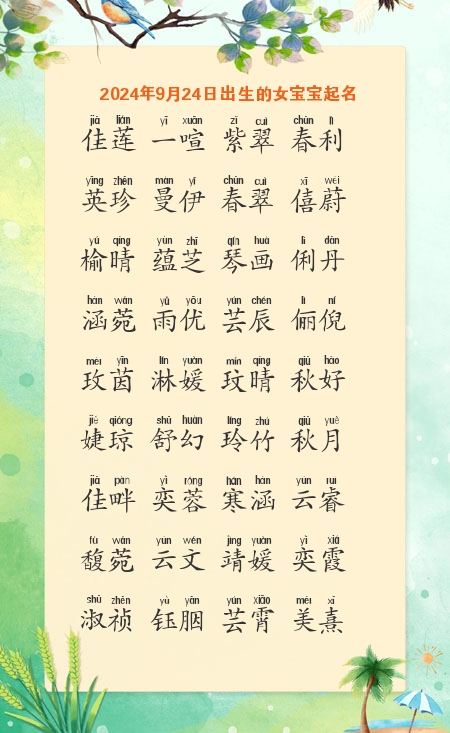 2024年9月24日出生的女宝宝起名
jiā lián yī xuān zǐ cuì chūn lì
佳莲 一喧 紫翠 春利
yīng zhēn màn yī chūn cuì xī wèi
英珍 曼伊 春翠 僖蔚
yú qíng yùn zhī qín huà lì dān
榆晴 蕴芝 琴画 俐丹
hán wǎn yǔ yōu yún chén lì ní
涵菀 雨优 芸辰 俪倪
méi yīn lín yuàn mín qíng qiū hǎo
玫茵 淋媛 玟晴 秋好
jié qióng shū huàn líng zhú qiū yuè
婕琼 舒幻 玲竹 秋月
jiā pàn yì róng hán hán yún ruì
佳畔 奕蓉 寒涵 云睿
fù wǎn yún wén jìng yuàn yì xiá
馥菀 云文 靖媛 奕霞
shū zhēn yù yān yún xiāo měi xī
淑祯 钰胭 芸霄 美熹